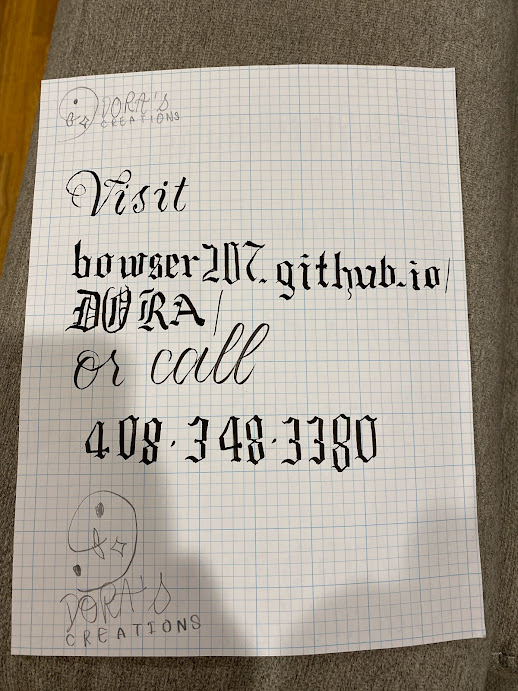 DORA'S
CREATIONS
Visit
bowser207.github.io/
DORA/
or call
408·348·3380
DORA'S
CREATIONS